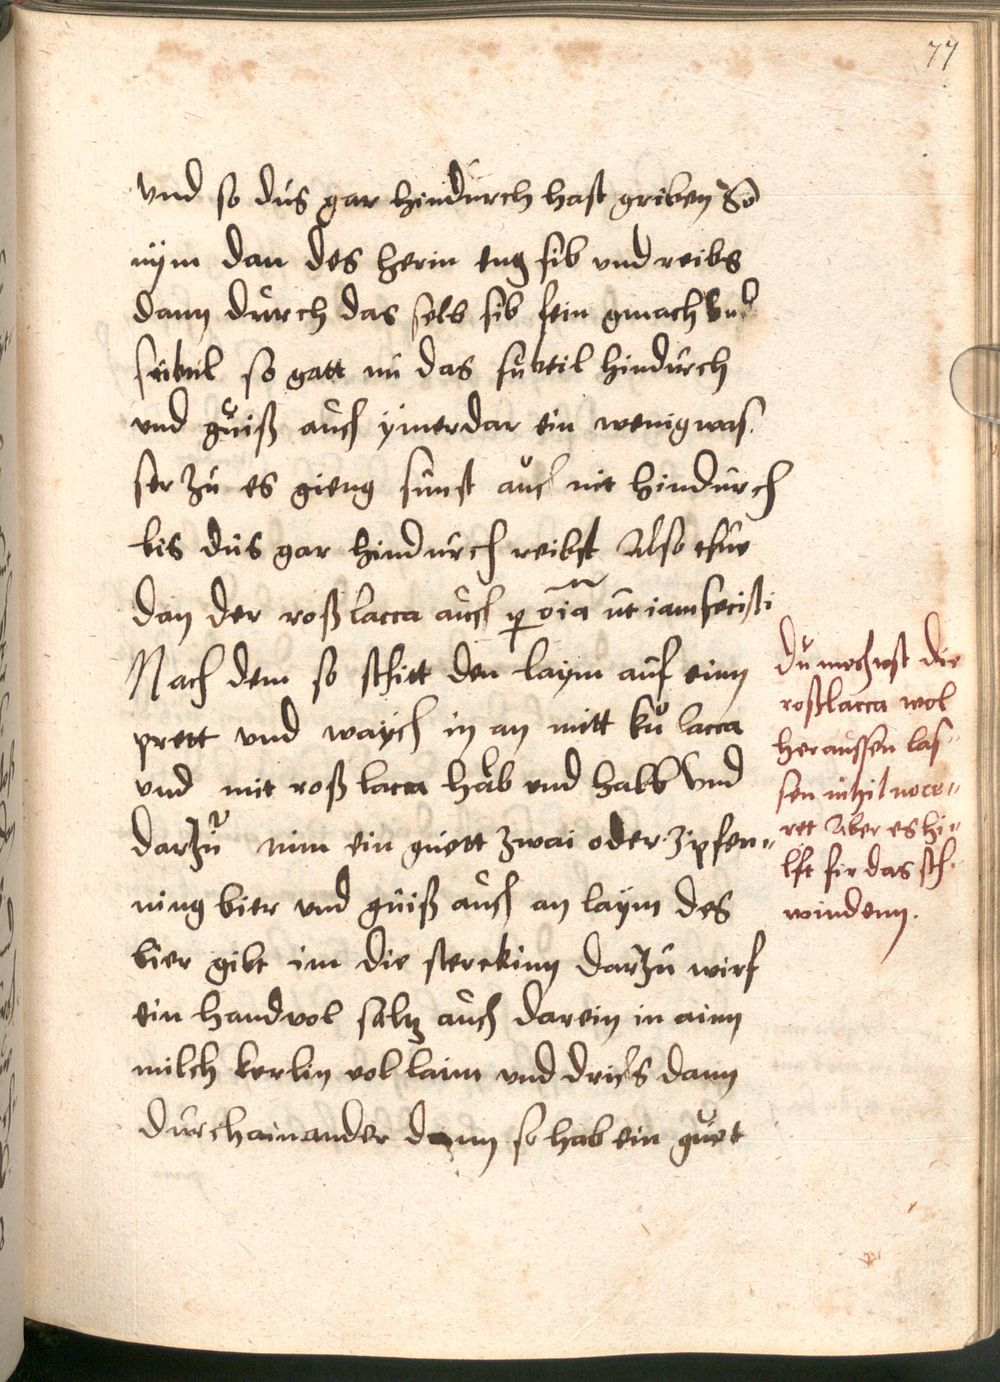 77
vnd so dus gar hindurch hast griben So
nÿm dan des herin eng sib vnd reibs
dann durch das selb sib fein gmach vnd
subtil so gatt nu das subteil hindurch
vnd guiß auch ÿmerdar ein wenig was¬
ser zu es gieng sunst auch nit hindurch
bis dus gar hindurch reibst Also thue
dan der roßlacca auch p oīa ut iam fecisti
Nach dem so schitt den laÿm auf einn
prett vnd waÿch in an mitt ku lacca
vnd mit roß lacca halb vnd halb vnd
darzu nim ein guett zwai oder 3 pfen¬
ning bier vnd guiß auch an laÿm des
bier gibt im die sterckinn darzu wirf
ein handvol saltz auch darein in ainn
milch kerlin vol laim vnd driehs dann
durchainander dann so hab ein guet
Du mechtest die
roßlacca wol
heraussen las¬
sen nihil noce¬
ret Aber es hi¬
lft fir das sch¬
windenn.